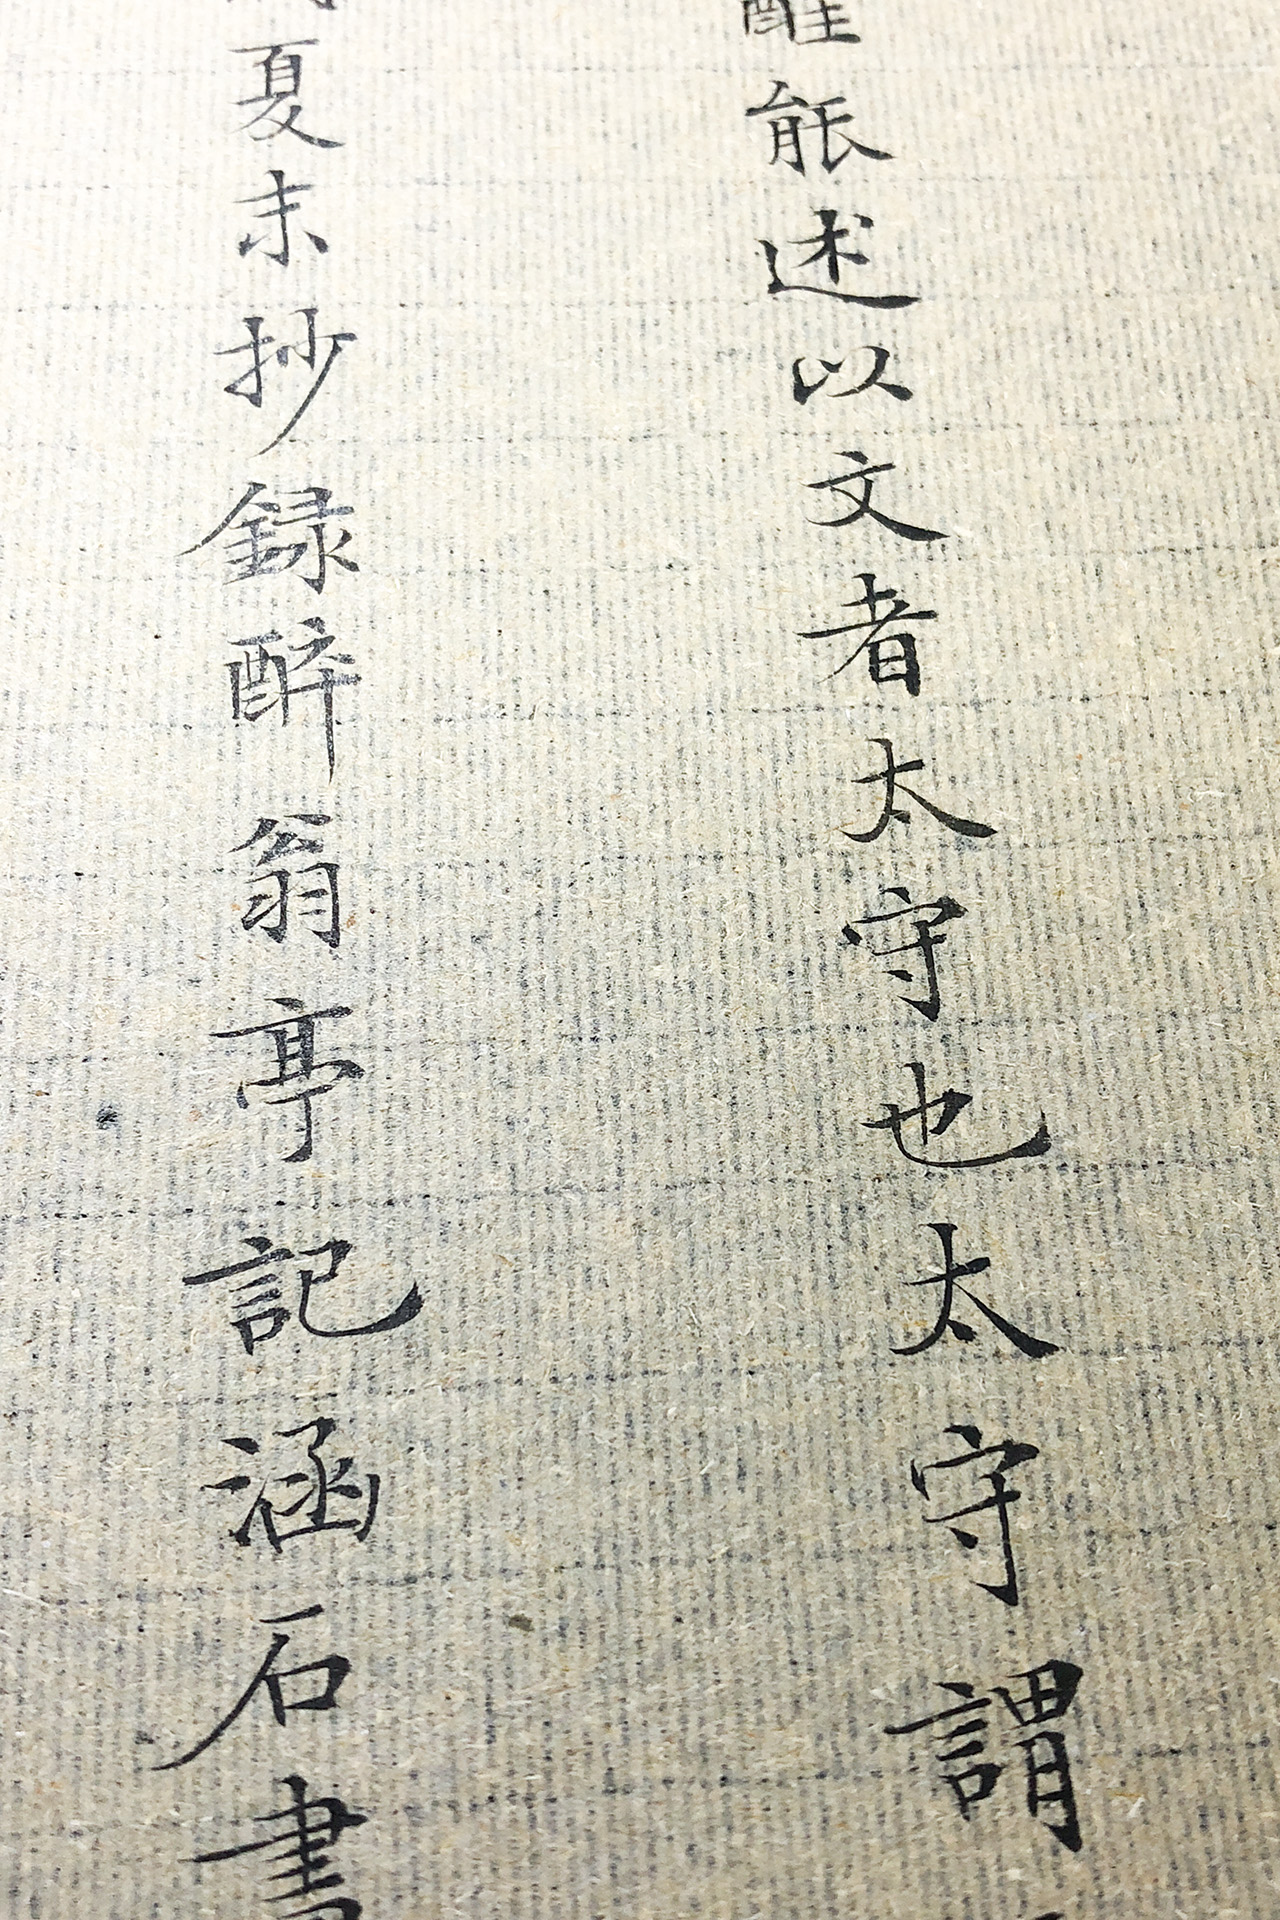 醒能述以文者太守也太守謂
夏末抄録醉翁亭記涵石書